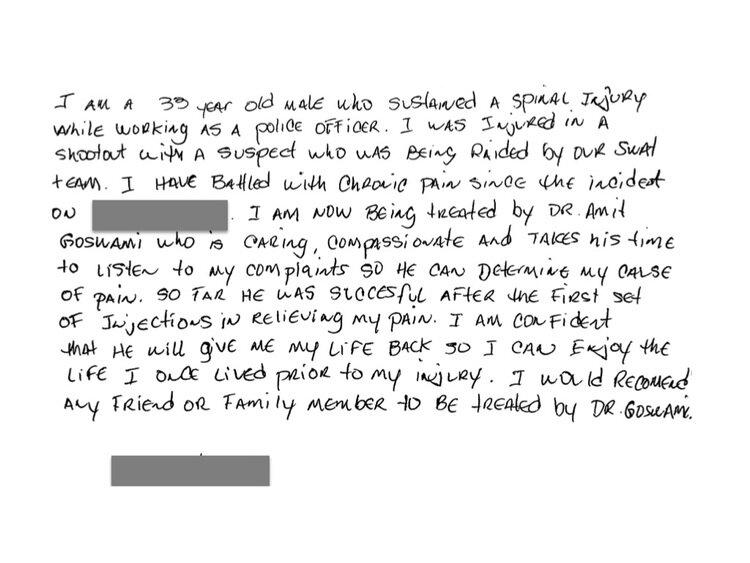 I AM A 39 YEAR Old MALE who SUSTAINED A SPINAL INJURY
while WORKING AS A POLICE OFFICER. I WAS INJURED IN A
SHOOTOUT WITH A SUSPECT WHO WAS BEING RAIDED by OUR SWAT
TEAM. I HAVE BATTLED with CHRONIC PAIN SINCE the incident
ON . I AM NOW BEING treated by DR. AMIT
GOSWAMI who is CARING, COMPASSIONATE AND TAKES his time
to LISTEN to MY COMPLAINTS SO HE CAN DETERMINE MY CAUSE
OF PAIN. SO FAR HE WAS SUCCESFUL AFTER the FIRST set
OF INJECTIONS IN RELIEVING MY PAIN. I AM CONFIDENT
that HE will give ME MY LIFE BACK SO I CAN ENJOY the
LIFE I ONCE LIVED PRIOR to MY INJURY. I WOULD RECOMEND
ANY FRIEND OR FAMILY MEMBER TO BE TREATED by DR. GOSWAMI.